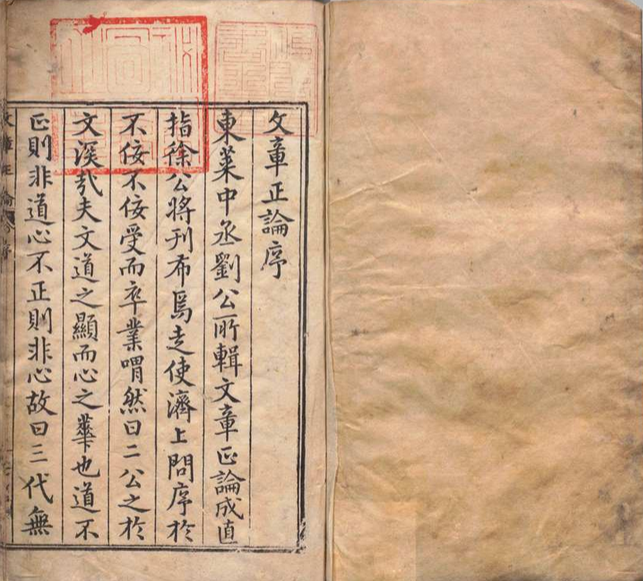 文章正論序
東萊中丞劉公所輯文章正論成直
指徐公將刊布焉走使濟上問序於
不佞不佞受而卒業喟然曰二公之於
文深哉夫文道之顯而心之華也道不
正則非道心不正則非心故曰三代無